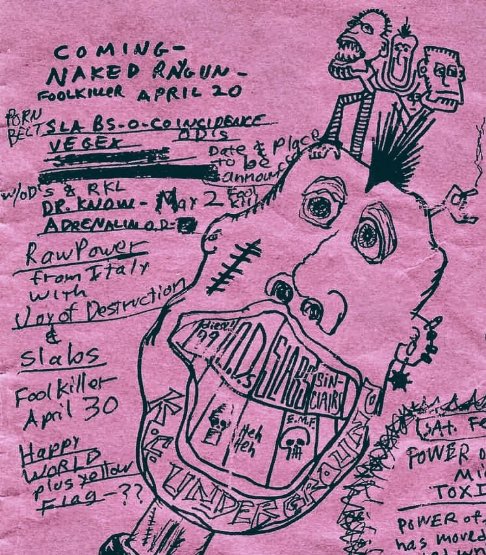 COMING-
NAKED RAYGUN-
FOOLKILLER APRIL 20
PORN
BELT
SLABS-O-COINCIDENCE
OD's
VEGEX
Date & Place
to be
announced
W/OD's & RKL
DR. KNOW - May 2 Fool
Kill
ADRENALIN O.D.
Raw Power
from Italy
with
Joy of Destruction
&
Slabs
Foolkiller
April 30
Happy
WORLD
plus yellow
Flag-??
O.D.s
SLABS
SIN-
CLAIRS
Heh
Heh
E.M.F.
K.C. UNDERGROUND
(SAt. Fe
POWER o
Mi
TOXI
POWER of
has moved